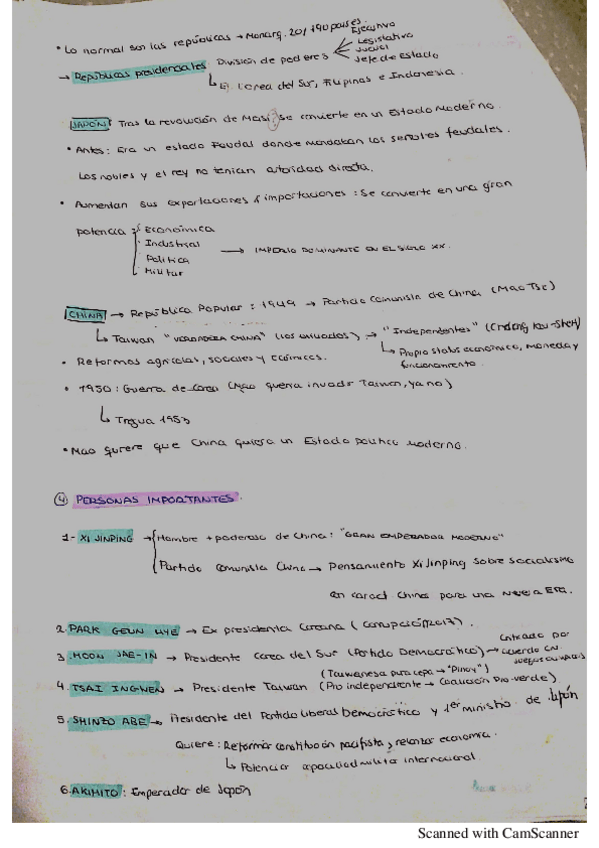 • Lo normal son las repúblicas → Monarq. 20/190 países.
→ Repúblicas presidenciales División de poderes Ejecutivo
Legislativo
Judicial
Jefe de Estado
↳ Ej. Corea del Sur, Filipinas e Indonesia.
JAPÓN: Tras la revolución de Meisi? se convierte en un Estado Moderno.
• Antes: Era un estado Feudal donde mandaban los señores feudales.
Los nobles y el rey no tenían autoridad directa.
• Aumentan sus exportaciones e importaciones: Se convierte en una gran
potencia: · Económica
· Industrial
· Política
· Militar
→ IMPERIO DOMINANTE EN EL SIGLO XX.
CHINA → República Popular: 1949 → Partido Comunista de China (Mao Tse)
↳ Taiwan "VERDADERA CHINA" (los exiliados) → "Independentes" (Chiang Kai-Shek)
↳ Propio status económico, moneda y
funcionamiento.
• Reformas agrícolas, sociales y
• 1950: Guerra de Corea (Mao quería invadir Taiwan, ya no)
↳ Tregua 1953
• Mao quiere que China quiera un Estado político moderno.
④ PERSONAS IMPORTANTES.
1- XI JINPING → Hombre + poderoso de China: "GRAN EMPERADOR MODERNO"
Partido Comunista Chino → Pensamiento Xi Jinping sobre socialismo
con caract. chinas para una NUEVA ERA.
2. PARK GEUN HYE → Ex presidenta Coreana (corrupción 2017).
3. MOON JAE-IN → Presidente Corea del Sur (Partido Democrático) →
4. TSAI INGWEN → Presidente Taiwan (Pro independiente → Coalición Pro-verde)
(Taiwanesa pura cepa → "Pinoy")
5. SHINZO ABE → Presidente del Partido Liberal Democrático y 1er ministro de Japón
Quiere: Reformar constitución pacifista, relanzar economía.
↳ Potenciar capacidad militar internacional.
6. AKIHITO: Emperador de Japón
Scanned with CamScanner